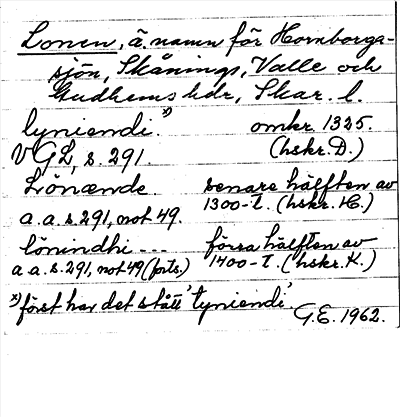 Lonen, ä. namn för Hornborga-
sjön, Skånings, Valle och
Gudhems hdr, Skar. l.
lyniendi.ˣ⁾ omkr. 1325.
VGL, s. 291. (hskr. D.)
Lönænde. senare hälften av
a.a.s.291, not 49. 1300-t. (hskr. H.)
lönindhi --- förra hälften av
a.a.s.291, not 49 (forts.) 1400-t. (hskr. K.)
ˣ⁾först har det stått 'tyniendi'.
G.E. 1962.